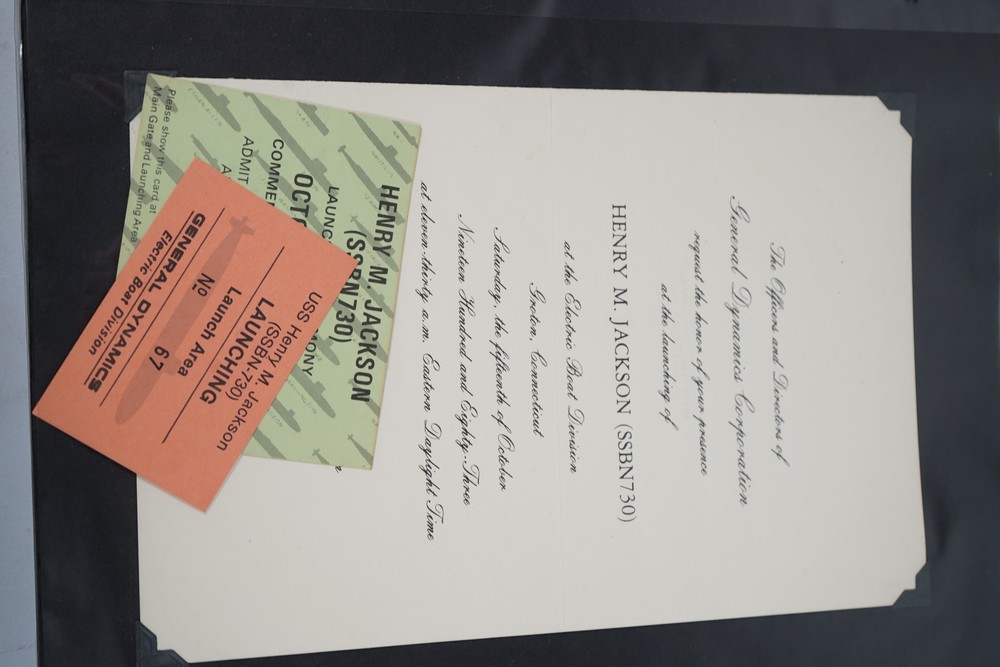 The Officers and Directors of
General Dynamics Corporation
request the honor of your presence
at the launching of
HENRY M. JACKSON (SSBN730)
at the Electric Boat Division
Groton, Connecticut
Saturday, the fifteenth of October
Nineteen Hundred and Eighty-Three
at eleven-thirty a.m. Eastern Daylight Time
HENRY M. JACKSON
(SSBN730)
LAUNC
MONY
OCT
COMME
ADMIT
A
Please show this card at
Main Gate and Launching Area
USS Henry M. Jackson
(SSBN-730)
LAUNCHING
Launch Area
No 67
GENERAL DYNAMICS
Electric Boat Division